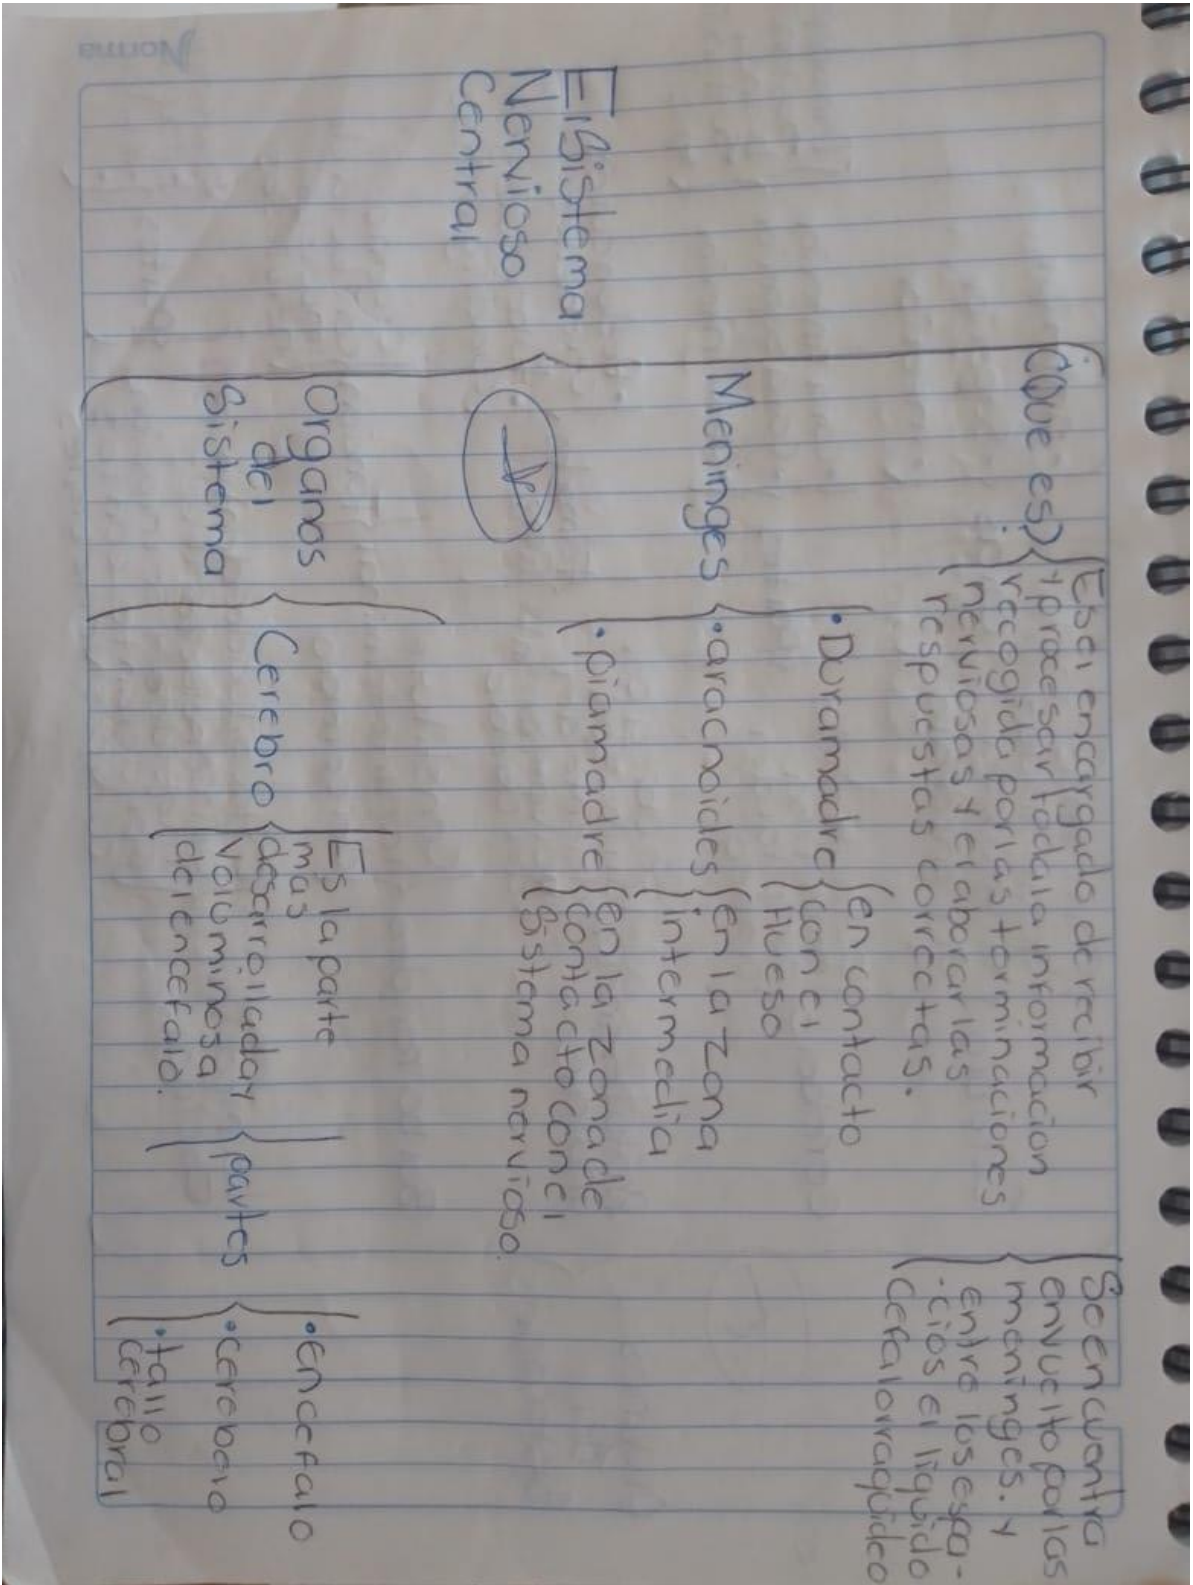 Norma
El Sistema
Nervioso
Central
¿Que es?
Es el encargado de recibir
y procesar toda la informacion
recogida por las terminaciones
nerviosas y elaborar las
respuestas correctas.
Se encuentra
envuelto por las
meninges. y
entre los espa-
-cios el líquido
cefalorraquideo
Meninges
• Duramadre
en contacto
con el
Hueso
• aracnoides
en la zona
intermedia
• piamadre
en la zona de
contacto con el
sistema nervioso.
Organos
del
Sistema
Cerebro
Es la parte
mas
desarrollada y
voluminosa
del encefalo.
partes
• Encefalo
• cerebelo
• tallo
cerebral